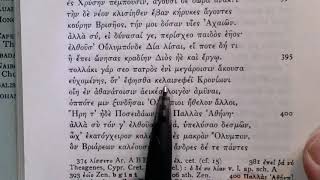 ἐς Χρύσην πέμπουσιν, ἄγουσι δὲ δῶρα ἄνακτι·
τὴν δὲ νέον κλισίηθεν ἔβαν κήρυκες ἄγοντες
κούρην Βρισῆος, τήν μοι δόσαν υἷες Ἀχαιῶν.
ἀλλὰ σύ, εἰ δύνασαί γε, περίσχεο παιδὸς ἑῆος·
ἐλθοῦσ' Οὔλυμπόνδε Δία λίσαι, εἴ ποτε δή τι
ἢ ἔπει ὤνησας κραδίην Διὸς ἠὲ καὶ ἔργῳ. 395
πολλάκι γάρ σεο πατρὸς ἐνὶ μεγάροισιν ἄκουσα
εὐχομένης, ὅτ' ἔφησθα κελαινεφέϊ Κρονίωνι
οἴη ἐν ἀθανάτοισιν ἀεικέα λοιγὸν ἀμῦναι,
ὁππότε μιν ξυνδῆσαι Ὀλύμπιοι ἤθελον ἄλλοι,
Ἥρη τ' ἠδὲ Ποσειδάων καὶ Παλλὰς Ἀθήνη·
ἀλλὰ σὺ τόν γ' ἐλθοῦσα, θεά, ὑπελύσαο δεσμῶν,
ὦχ' ἑκατόγχειρον καλέσασ' ἐς μακρὸν Ὄλυμπον,
ὃν Βριάρεων καλέουσι θεοί, ἄνδρες δέ τε πάντες
374 λίσσετο Ar. A B E cet. (cf. 15)